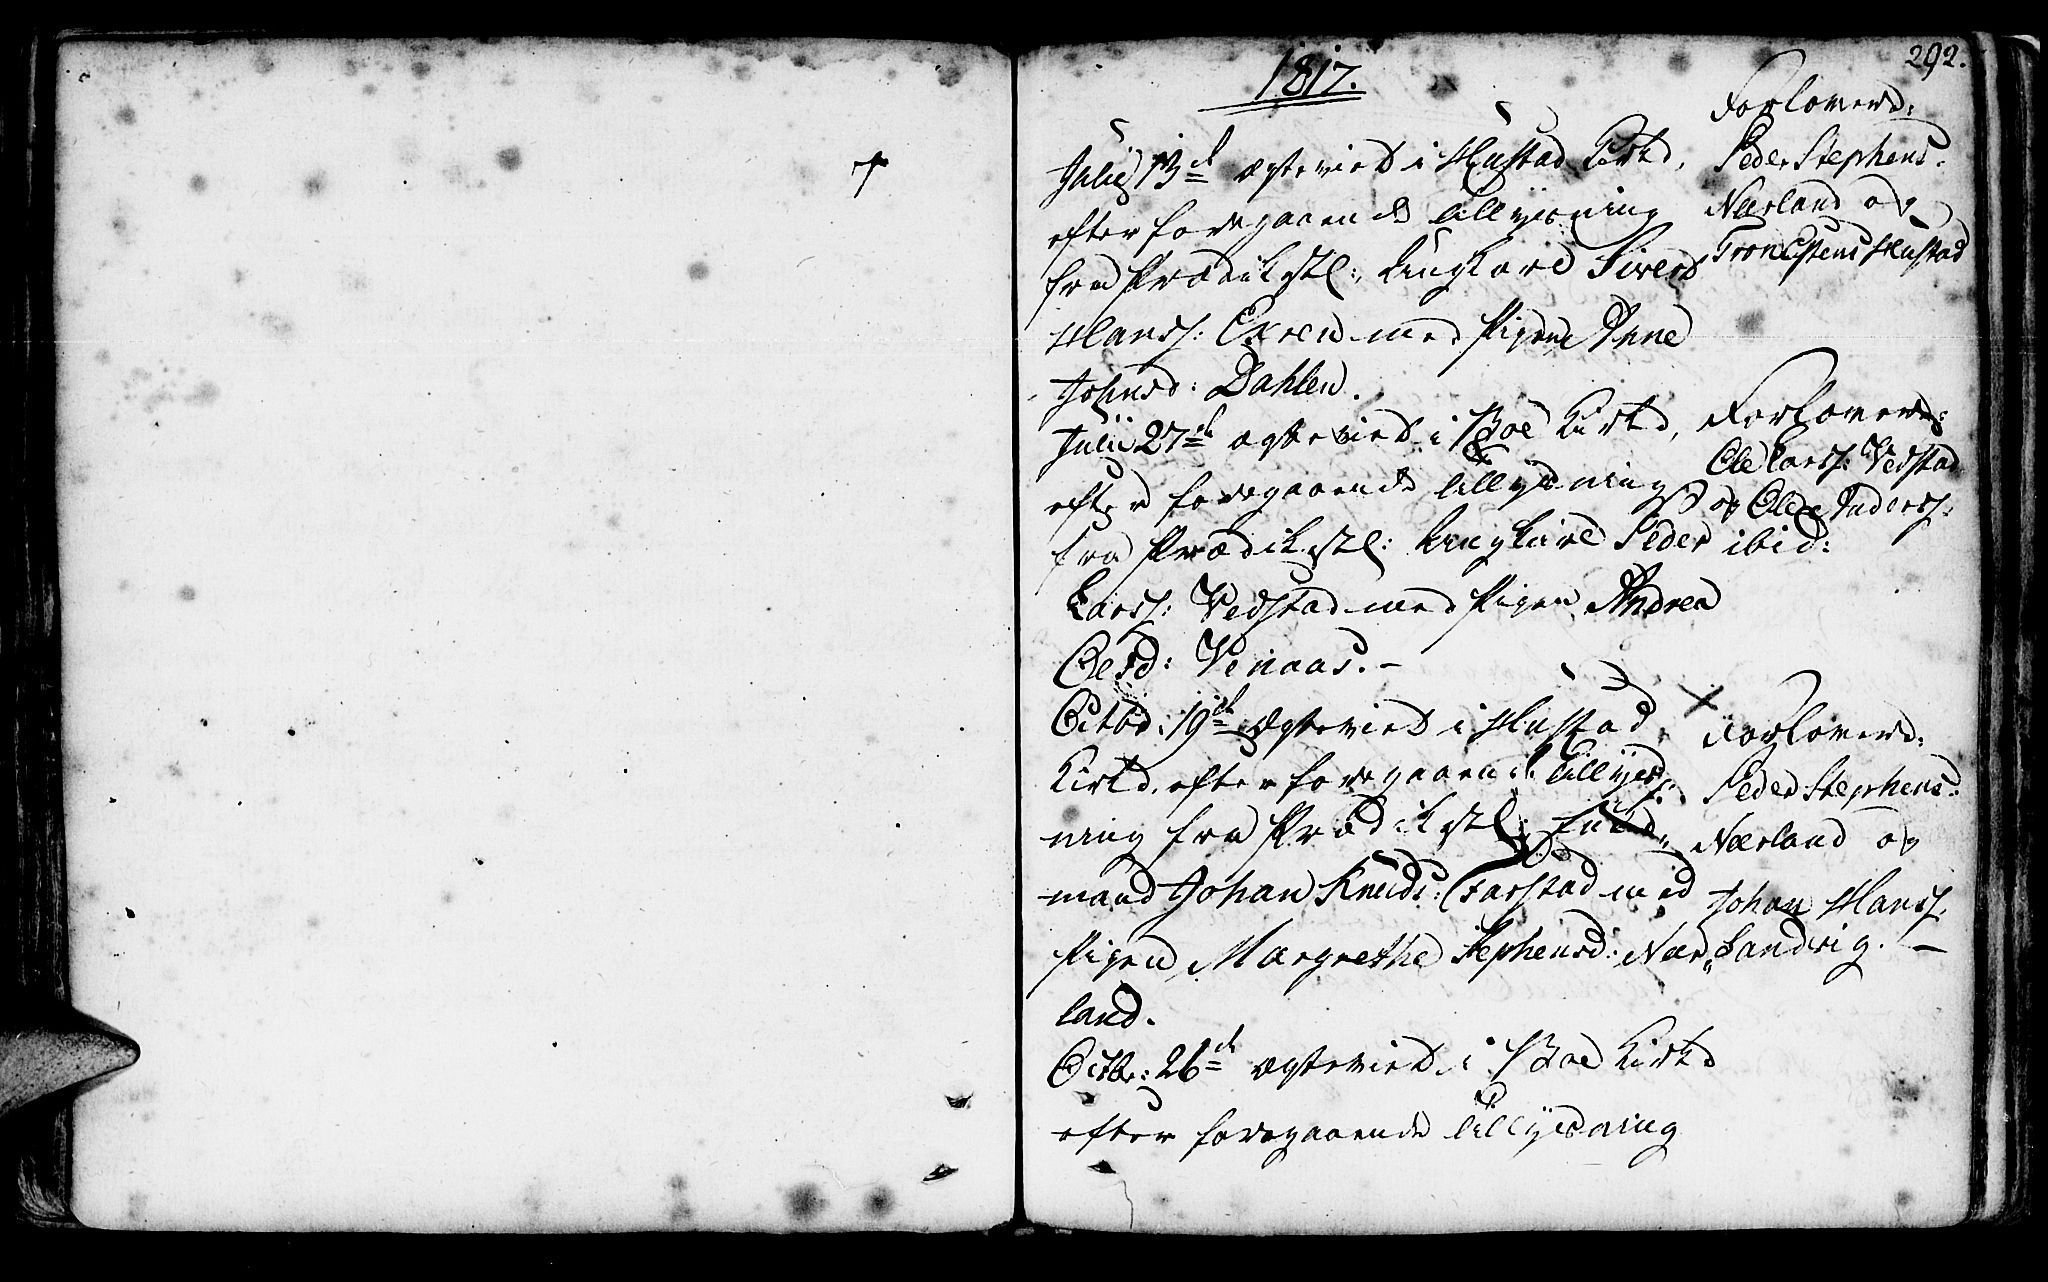 292.
1817.
Julii 13de ægteviet i Hustad Kirke,
efter foregaaende Tillysning
fra Prædikestl: Ungkarl Sivert
Hanss: Exsen med Pigen Anne
Johnsd: Dahlen.
Forlovere:
Peder Stephens:
Nærland og
Tron Estens Hustad
Julii 27de ægteviet i Boe Kirke,
efter foregaaende Tillysning
fra Prædikestl: Ungkarl Peder
Larss: Vedstad med Pigen Andrea
Olesd: Venaas.-
Forlovere:
Ole Larss: Vedstad
og Ole Anderss:
ibid:
Octbr: 19de ægteviet i Hustad
Kirke, efter foregaaende Tillys-
ning fra Prædikestl: Enke-
mand Johan Knuds: Farstad med
Pigen Margrethe Stephensd: Nær-
land.
Forlovere:
Peder Stephens:
Nærland og
Johan Hanss:
Sandvig. -
Octbr: 26de ægteviet i Boe Kirke
efter foregaaende Tillysning